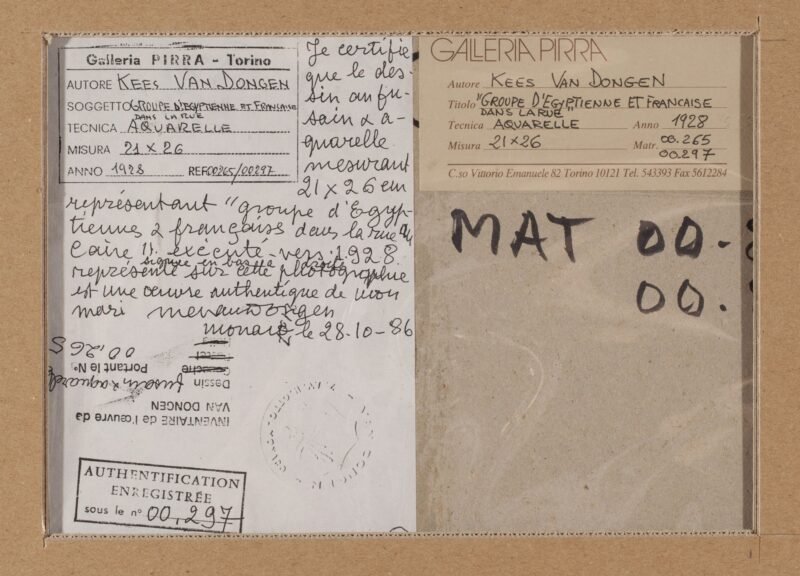 Galleria PIRRA - Torino
AUTORE KEES VAN DONGEN
SOGGETTO GROUPE D'EGYPTIENNE ET FRANCAISE
DANS LA RUE
TECNICA AQUARELLE
MISURA 21 X 26
ANNO 1928 REF.00265/00297
Je certifie
que le des-
sin au fu-
sain & a-
quarelle
mesurant
21 x 26 cm
représentant "groupe d'Egyp-
tiennes & françaises dans la rue au
Caire" exécuté vers 1928
signée en bas à droite
représenté sur cette photographie
est une œuvre authentique de mon
mari
monaco le 28-10-86
INVENTAIRE de l'œuvre de
VAN DONGEN
Dessin fusain & aquarelle
Gouache
Portant le N° 00,265
AUTHENTIFICATION
ENREGISTRÉE
sous le n° 00,297
GALLERIA PIRRA
Autore KEES VAN DONGEN
Titolo "GROUPE D'EGYPTIENNE ET FRANCAISE
DANS LA RUE"
Tecnica AQUARELLE Anno 1928
Misura 21X26 Matr. 00.265
00.297
C.so Vittorio Emanuele 82 Torino 10121 Tel. 543393 Fax 5612284
MAT 00.
00.